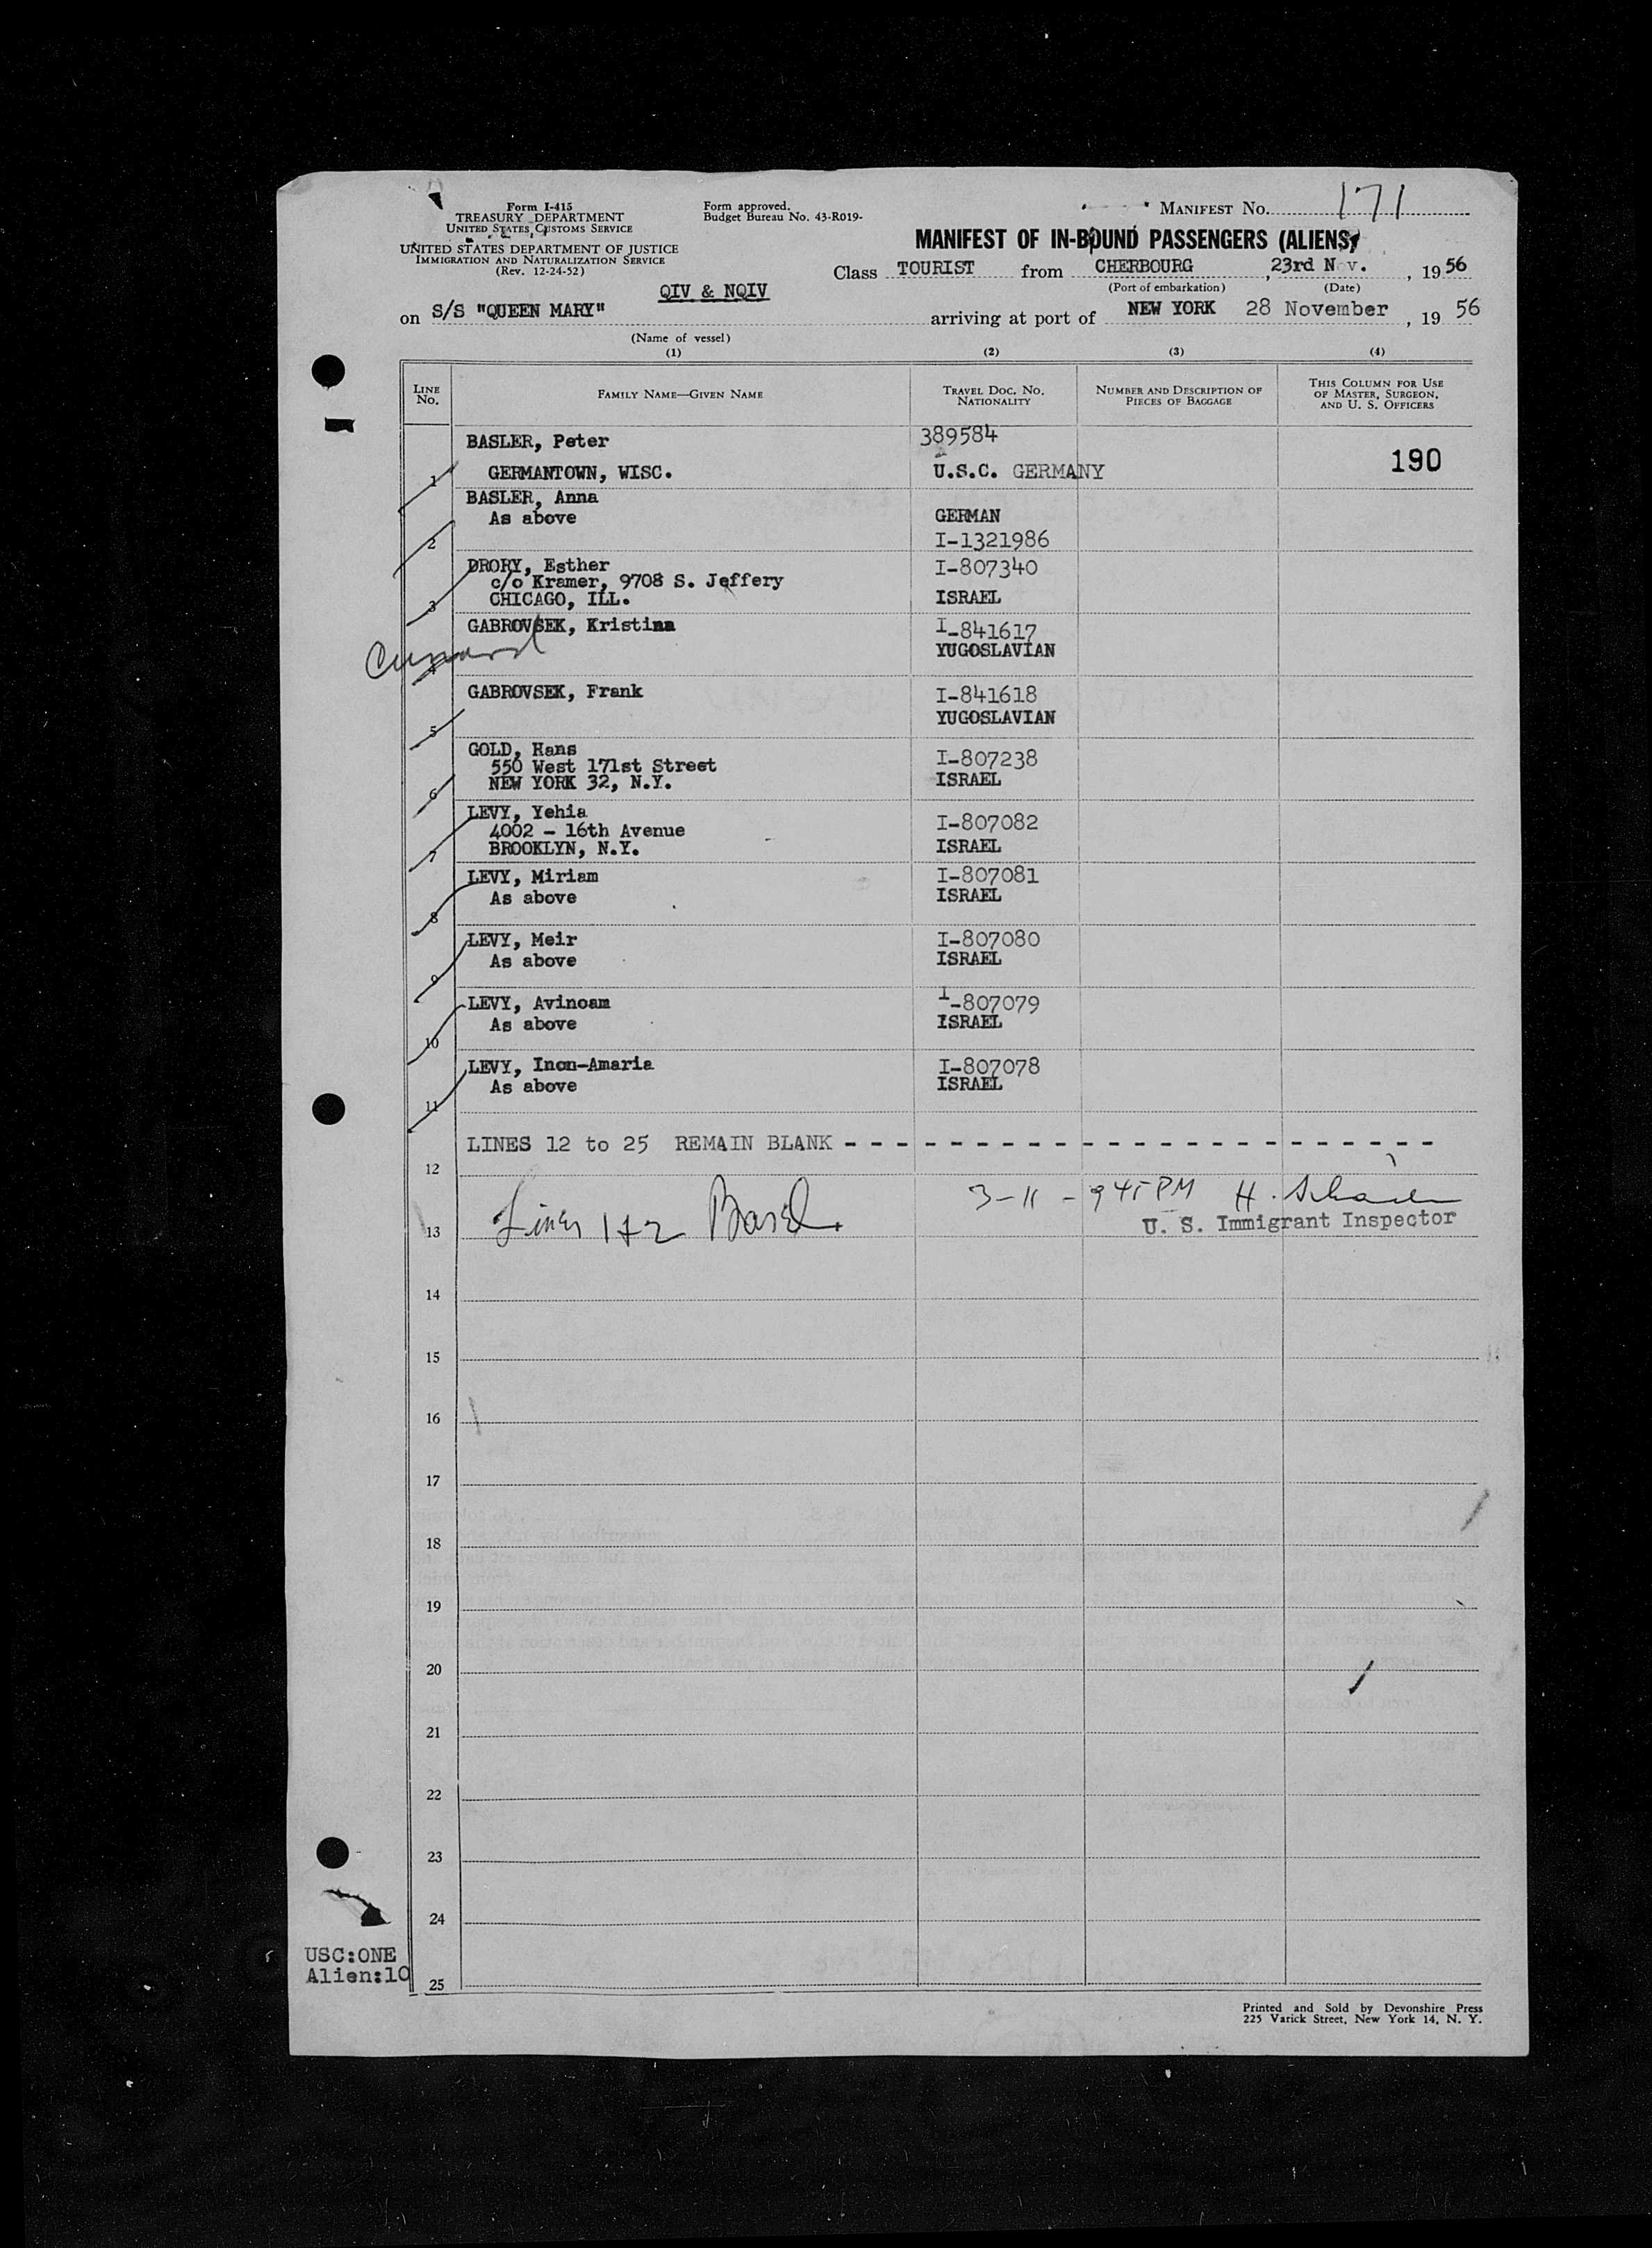 Form I-415
TREASURY DEPARTMENT
UNITED STATES CUSTOMS SERVICE
UNITED STATES DEPARTMENT OF JUSTICE
IMMIGRATION AND NATURALIZATION SERVICE
(Rev. 12-24-52)
Form approved.
Budget Bureau No. 43-R019-
MANIFEST NO. 171
MANIFEST OF IN-BOUND PASSENGERS (ALIENS)
Class TOURIST from CHERBOURG, 23rd Nov., 1956
(Port of embarkation) (Date)
QIV & NQIV
on S/S "QUEEN MARY" arriving at port of NEW YORK 28 November, 19 56
(Name of vessel)
(1) (2) (3) (4)
LINE No. FAMILY NAME—GIVEN NAME TRAVEL DOC. NO. NATIONALITY NUMBER AND DESCRIPTION OF PIECES OF BAGGAGE THIS COLUMN FOR USE OF MASTER, SURGEON, AND U. S. OFFICERS
BASLER, Peter 389584
1 GERMANTOWN, WISC. U.S.C. GERMANY 190
BASLER, Anna
As above GERMAN
2 I-1321986
DRORY, Esther I-807340
c/o Kramer, 9708 S. Jeffery
3 CHICAGO, ILL. ISRAEL
GABROVSEK, Kristina I-841617
4 Cunard YUGOSLAVIAN
GABROVSEK, Frank I-841618
5 YUGOSLAVIAN
GOLD, Hans
550 West 171st Street I-807238
6 NEW YORK 32, N.Y. ISRAEL
LEVY, Yehia
4002 - 16th Avenue I-807082
7 BROOKLYN, N.Y. ISRAEL
LEVY, Miriam I-807081
8 As above ISRAEL
LEVY, Meir I-807080
9 As above ISRAEL
LEVY, Avinoam I-807079
10 As above ISRAEL
LEVY, Inon-Amaria I-807078
11 As above ISRAEL
LINES 12 to 25 REMAIN BLANK - - - - - - - - - - - - - - - - - - - - - - -
12
Lines 1+2 3-11 - 9 45 PM H.
13 U. S. Immigrant Inspector
14
15
16
17
18
19
20
21
22
23
24
USC:ONE
Alien:10
25
Printed and Sold by Devonshire Press
225 Varick Street, New York 14, N. Y.